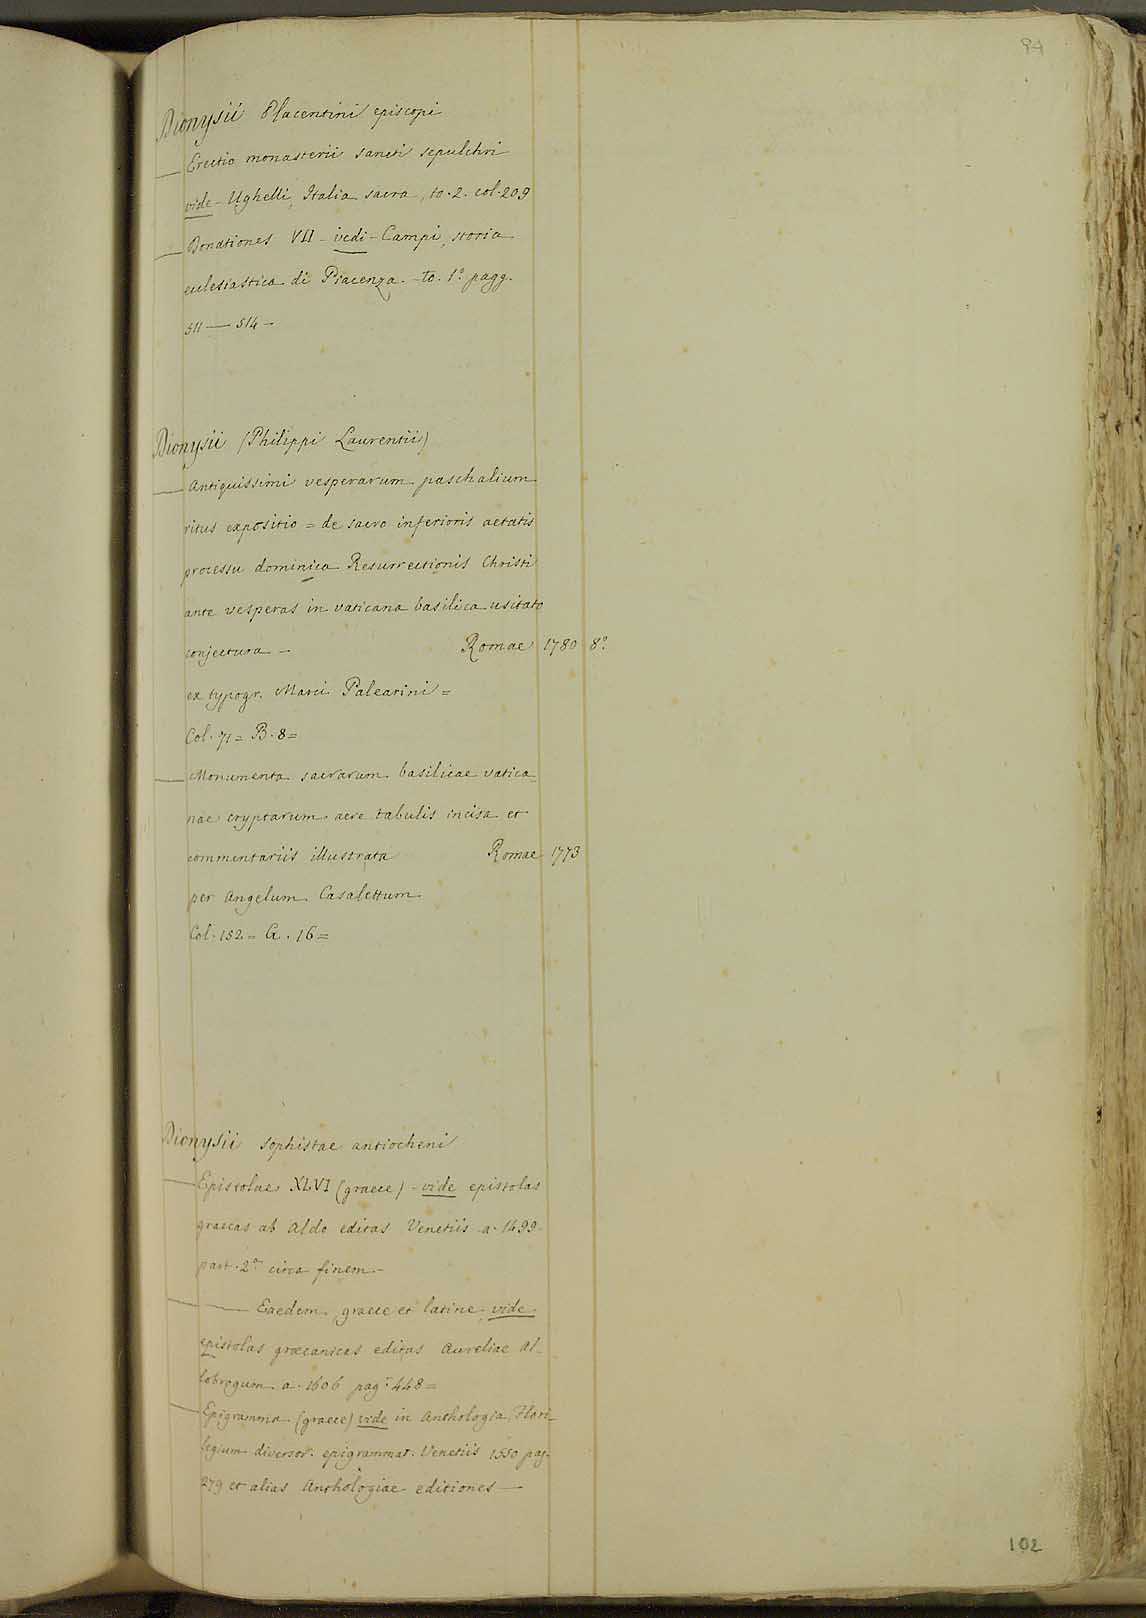 94
Dionysii Placentini episcopi
— Erectio monasterii sancti sepulchri
vide - Ughelli, Italia sacra, to. 2. col. 209
— Donationes VII - vedi - Campi, storia
ecclesiastica di Piacenza - To. 1.º pagg.
511 — 514 -
Dionysii (Philippi Laurentii)
— Antiquissimi vesperarum paschalium
ritus expositio = de sacro inferioris aetatis
processu dominica Resurrectionis Christi
ante vesperas in vaticana basilica usitato
conjectura - Romae 1780 8.º
ex typogr. Marci Palearini =
Col. 71 = B. 8 =
— Monumenta sacrarum basilicae vatica_
nae cryptarum aere tabulis incisa et
commentariis illustrata Romae 1773
per Angelum Casalettum
Col. 152 = G. 16 =
Dionysii sophistae antiocheni
— Epistolae XLVI (graece) - vide epistolas
graecas ab Aldo editas Venetiis a. 1499
part. 2.ª circa finem -
— — Eaedem, graece et latine, vide
epistolas graecanicas editas Aureliae Al_
lobrogum a. 1606 pag. 448 =
— Epigramma (graece) vide in Anthologia, Flori_
legium diversor. epigrammat. Venetiis 1550 pag.
279 et alias Anthologiae editiones —
102